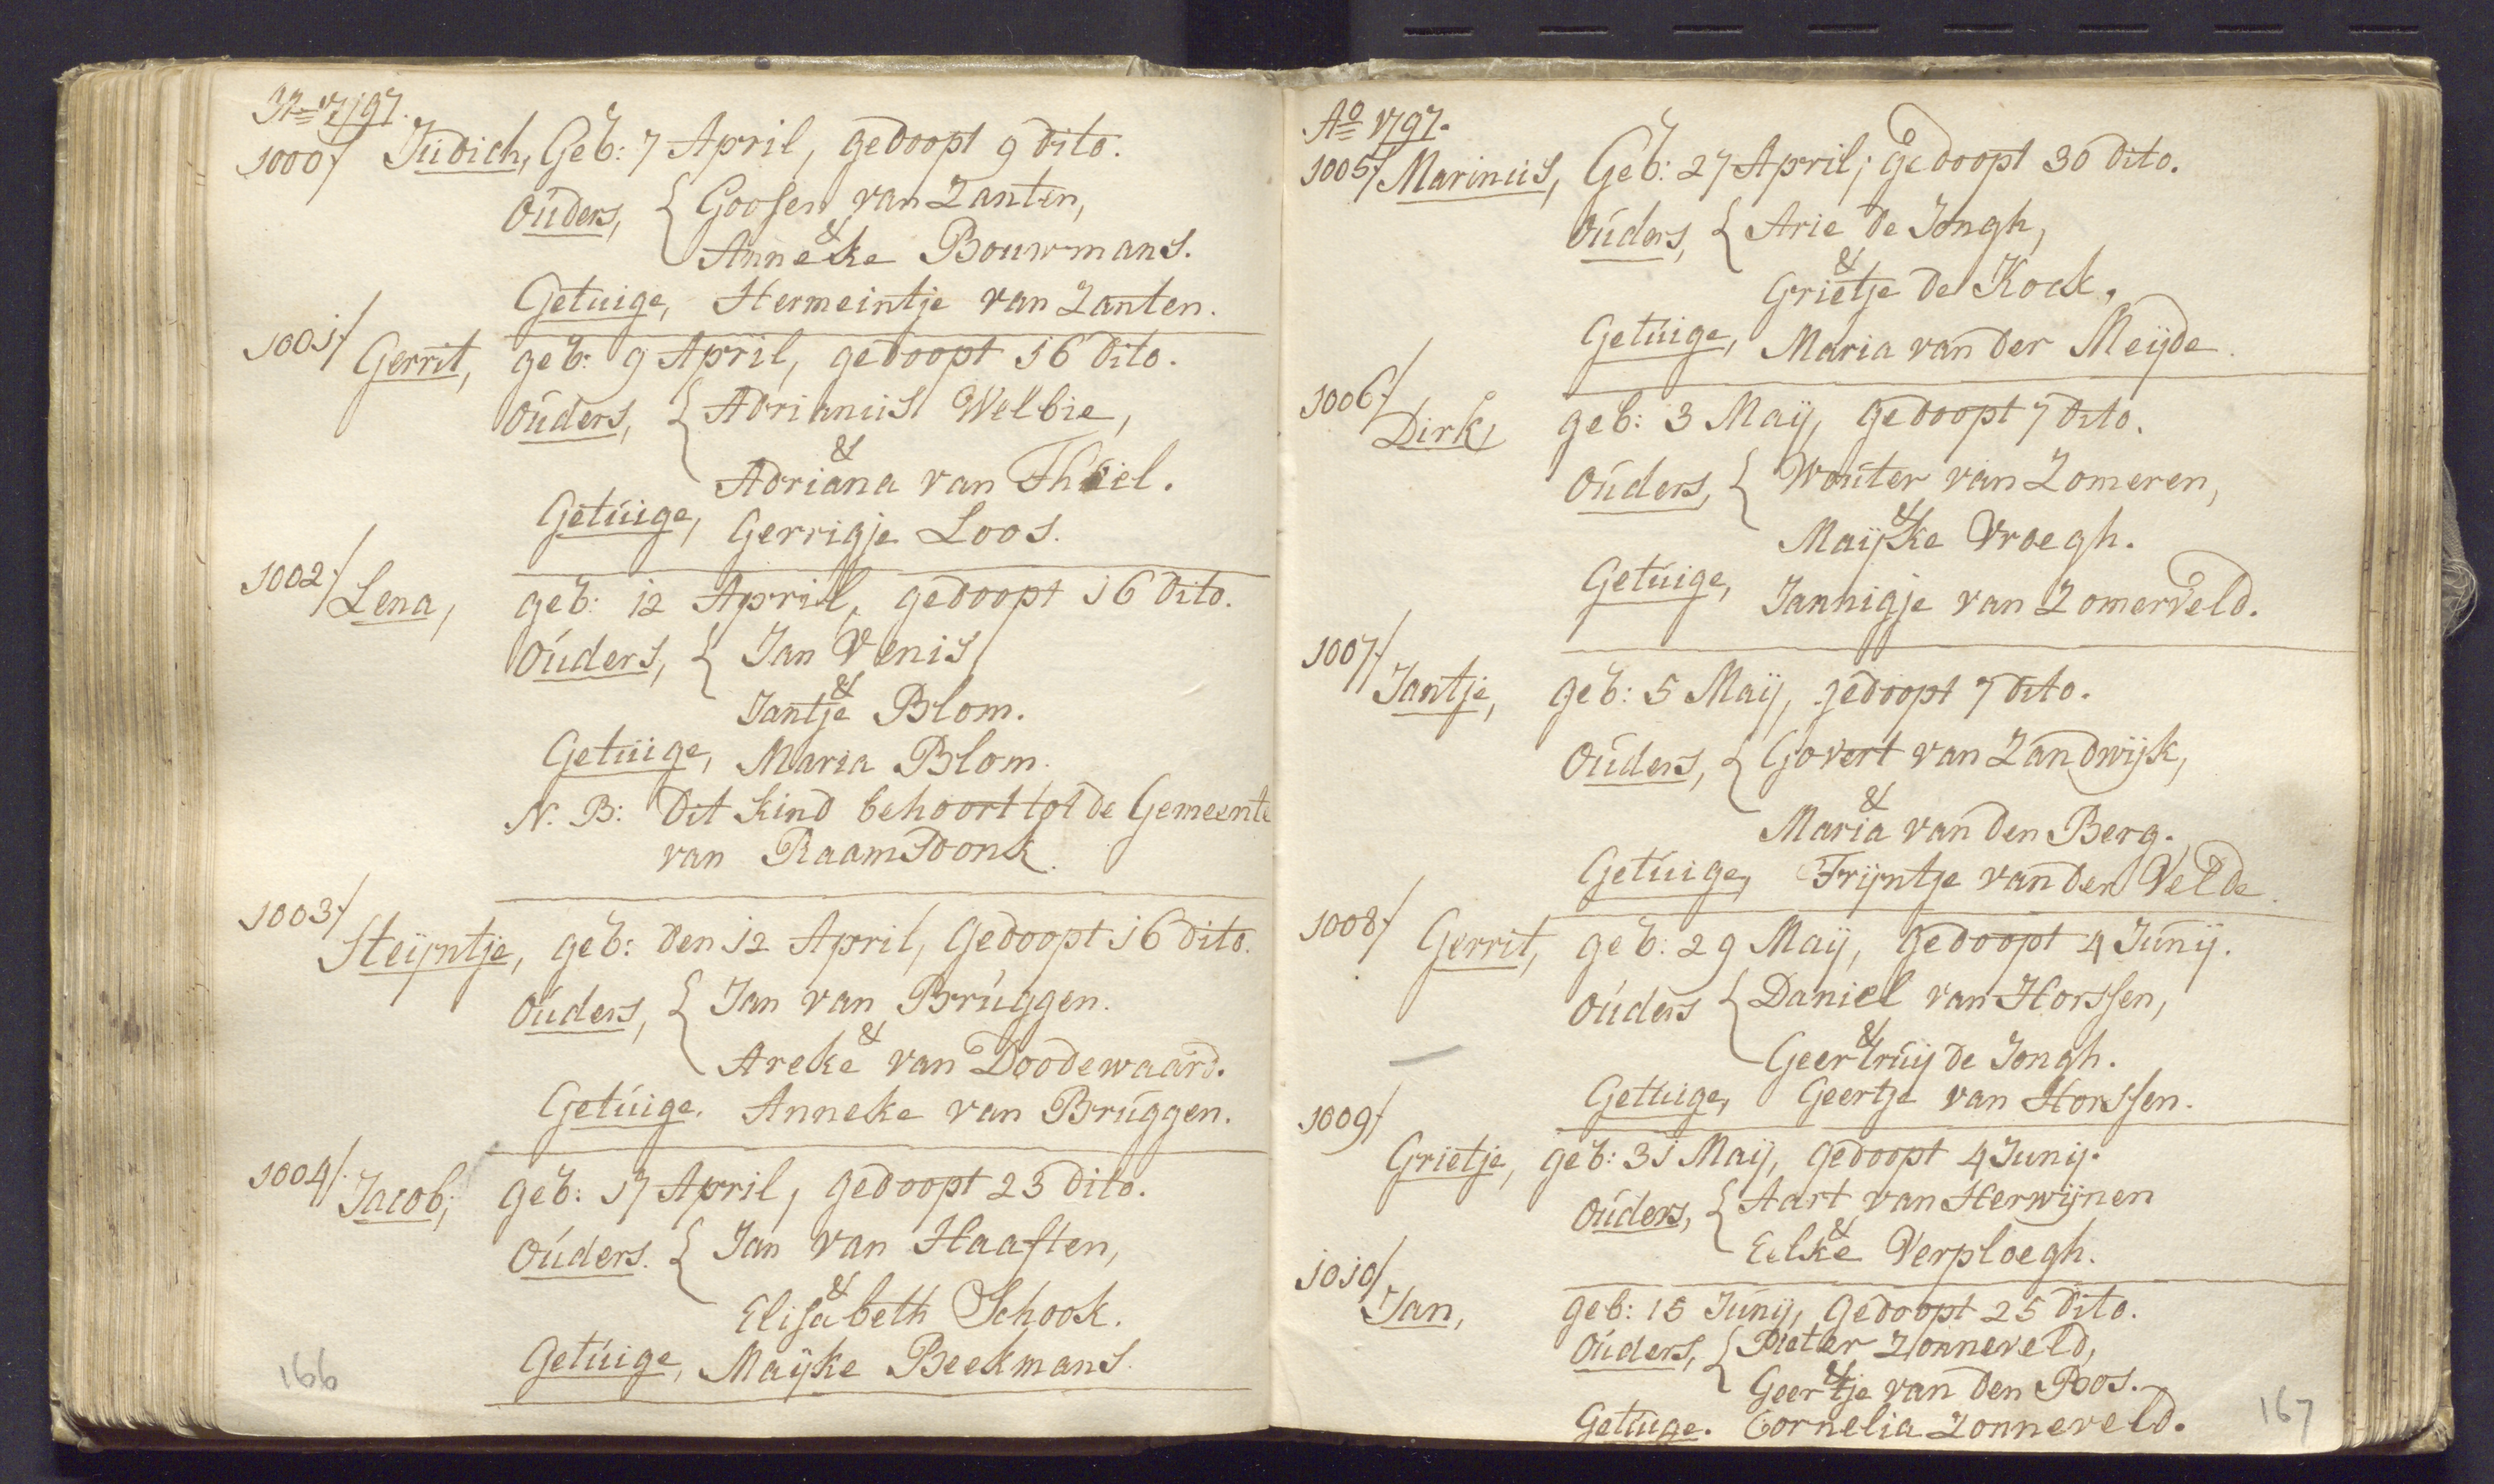 Ao 1797.
1000/ Judich, Geb: 7 April, gedoopt 9 dito.
Ouders, { Goosen van Zanten,
&
Anneke Bouwmans.
Getuige, Hermeintje van Zanten.
1001/ Gerrit, geb: 9 April, gedoopt 16 dito.
Ouders, { Adrianus Welbie,
&
Adriana van Thiel.
Getuige, Gerrigje Loos.
1002/ Lena, geb: 12 April, gedoopt 16 dito.
Ouders, { Jan Venis,
&
Jantje Blom.
Getuige, Maria Blom.
N. B: Dit kind behoort tot de Gemeente
van Raamsdonk.
1003/ Steijntje, geb: den 12 April, Gedoopt 16 dito.
Ouders, { Jan van Bruggen.
&
Areke van Doodewaard.
Getuige. Anneke van Bruggen.
1004/. Jacob, geb: 17 April, gedoopt 23 dito.
Ouders. { Jan van Haaften,
&
Elisabeth Schook.
Getuige, Maijke Beekmans.
166
Ao 1797.
1005/ Marinus, Geb: 27 April; gedoopt 30 dito.
Ouders, { Arie de Jongh,
&
Grietje de Kock.
Getuige, Maria van der Meijde.
1006/ Dirk, geb: 3 Maij, gedoopt 7 dito.
Ouders, { Wouter van Zomeren,
&
Maijke Vroegh.
Getuige, Jannigje van Zomerveld.
1007/ Jantje, geb: 5 Maij, gedoopt 7 dito.
Ouders, { Govert van Zandwijk,
&
Maria van den Berg.
Getuige, Trijntje van der Velde.
1008/ Gerrit, geb: 29 Maij, gedoopt 4 Junij.
Ouders { Daniel van Horssen,
&
Geertruij de Jongh.
Getuige, Geertje van Horssen.
1009/ Grietje, geb: 31 Maij, gedoopt 4 Junij.
Ouders, { Aart van Herwijnen
&
Eelke Verploegh.
1010/ Jan, geb: 15 Junij, Gedoopt 25 dito.
Ouders, { Pieter Zonneveld,
&
Geertje van den Bos.
Getuige. Cornelia Zonneveld.
167